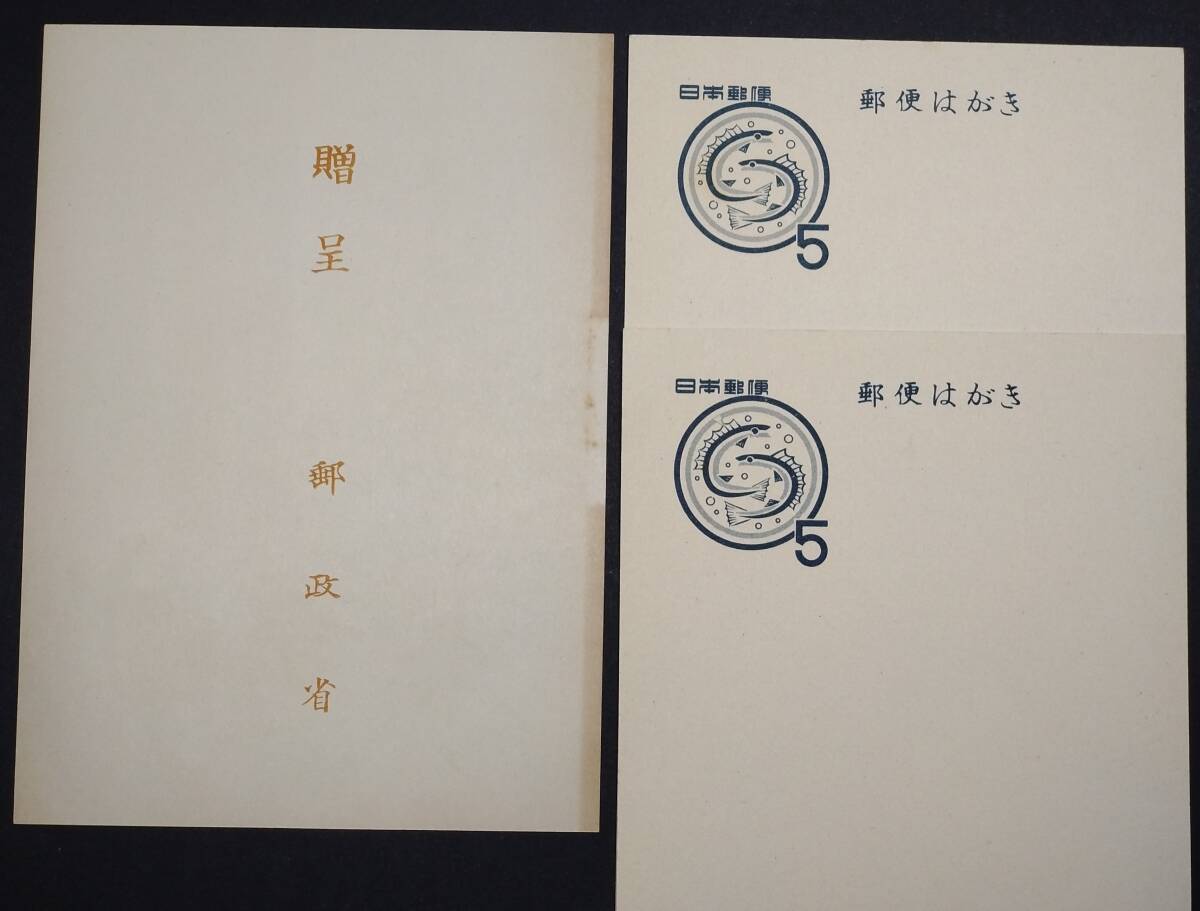 贈呈
郵政省
日本郵便
郵便はがき
5
日本郵便
郵便はがき
5